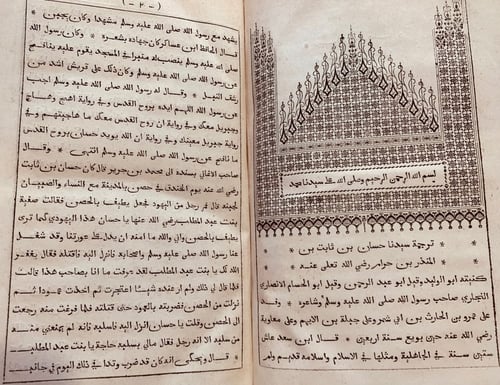 بسم الله الرحمن الرحيم وصلى الله على سيدنا محمد
* ترجمة سيدنا حسان بن ثابت بن *
* المنذر بن حرام رضى الله تعالى عنه *
كنيته ابو الوليد وقيل ابو عبد الرحمن وقيل ابو الحسام الانصارى
النجارى صاحب رسول الله صلى الله عليه وسلم وشاعره * وفد
على عمرو بن الحارث بن ابى شمر وعلى جبلة بن الايهم وعلى معاوية
رضى الله عنه حين بويع سنة اربعين * قال ابن سعد عاش
ستين سنة فى الجاهلية ومثلها فى الاسلام واسلامه قديم ولم
(-٢-)
يشهد مع رسول الله صلى الله عليه وسلم مشهدا وكان يجبن *
قال الحافظ ابن عساكر كان جهاده بشعره * وكان رسول الله
صلى الله عليه وسلم ينصب له منبرا فى المسجد يقوم عليه ينافح
عن رسول الله صلى الله عليه وسلم وكان ذلك على قريش اشد من
رشق النبل * وقال له رسول الله صلى الله عليه وسلم اجب
عن رسول الله اللهم ايده بروح القدس وفى رواية اهجهم وهاجهم
وجبريل معك وفى رواية ان روح القدس معك ما هاجيتهم وفى
رواية جبريل معينك وفى رواية ان الله يؤيد حسان بروح القدس
ما نافح عن رسول الله صلى الله عليه وسلم انتهى * وقال
صاحب الاغانى بسنده الى محمد بن جرير قال كان حسان بن ثابت
رضى الله عنه يوم الخندق فى حصن بالمدينة مع النساء والصبيان
لجبنه قال فمر رجل من اليهود فجعل يطيف بالحصن فقالت صفية
بنت عبد المطلب رضى الله عنها يا حسان ان هذا اليهودى كما ترى
يطيف بالحصن وانى والله ما امنه ان يدل على عورتنا وقد شغل
عنا رسول الله صلى الله عليه وسلم واصحابه فانزل اليه فاقتله فقال يغفر
الله لك يا بنت عبد المطلب لقد عرفت ما انا بصاحب هذا قالت
فلما قال لى ذلك ولم ار عنده شيئا اعتجرت ثم اخذت عمودا ثم
نزلت من الحصن فضربته بالعمود حتى قتلته فلما فرغت منه رجعت
الى الحصن وقلت يا حسان انزل اليه فاسلبه فانه لم يمنعنى منه
من سلبه الا انه رجل فقال مالى بسلبه حاجة يا بنت عبد المطلب
قال * ويحكى انه كان قد ضرب وتدا فى ذلك اليوم فى جانب